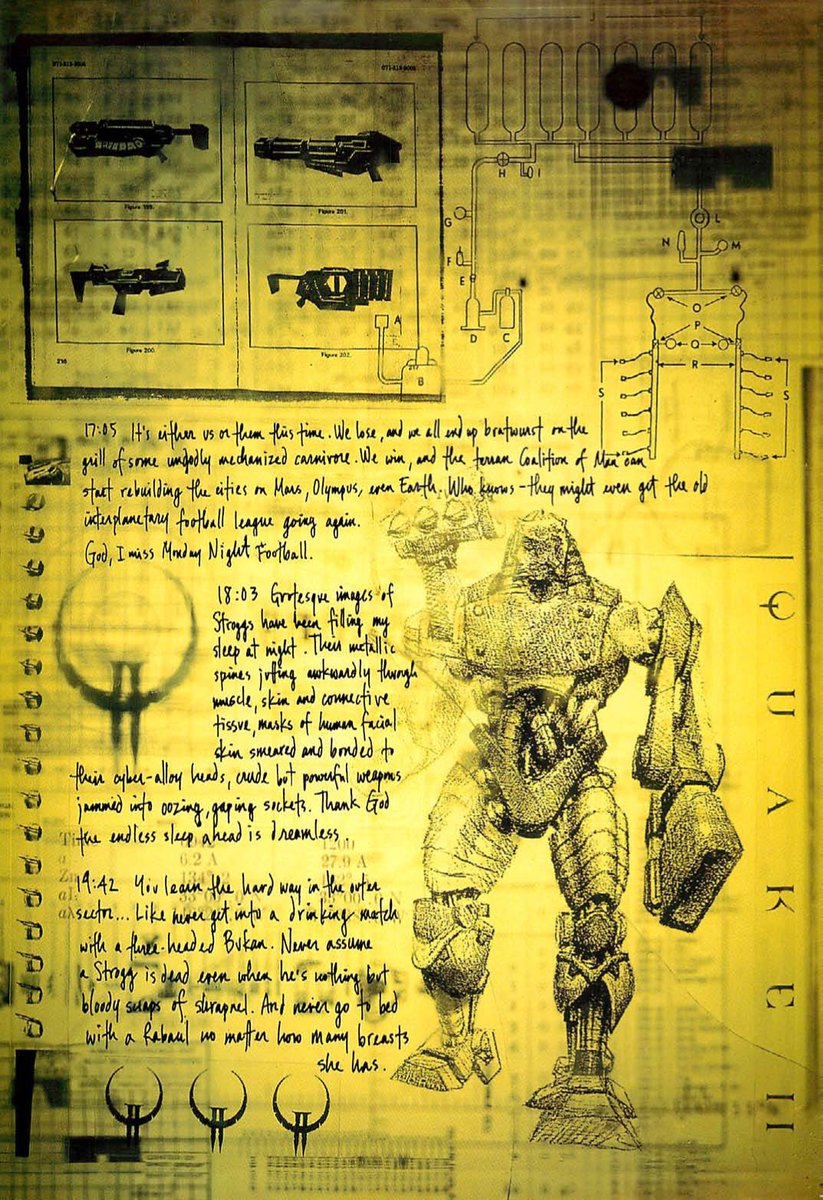 071-313-9006
071-313-9006
Figure 199.
Figure 201.
Figure 200.
Figure 202.
216
217
J
H
I
G
F
E
D
C
A
B
L
N
M
O
P
Q
R
S
S
17:05 It's either us or them this time. We lose, and we all end up bratwurst on the
grill of some ungodly mechanized carnivore. We win, and the terran Coalition of Man can
start rebuilding the cities on Mars, Olympus, even Earth. Who knows - they might even get the old
interplanetary football league going again.
God, I miss Monday Night Football.
18:03 Grotesque images of
Stroggs have been filling my
sleep at night. Their metallic
spines jutting awkwardly through
muscle, skin and connective
tissue, masks of human facial
skin smeared and bonded to
their cyber-alloy heads, crude but powerful weapons
jammed into oozing, gaping sockets. Thank God
the endless sleep ahead is dreamless.
1200
6.2 A
27.9 A
19:42 You learn the hard way in the outer
sector... Like never get into a drinking match
with a three-headed Bukan. Never assume
a Strogg is dead even when he's nothing but
bloody scraps of shrapnel. And never go to bed
with a Rabaul no matter how many breasts
she has.
QUAKE II